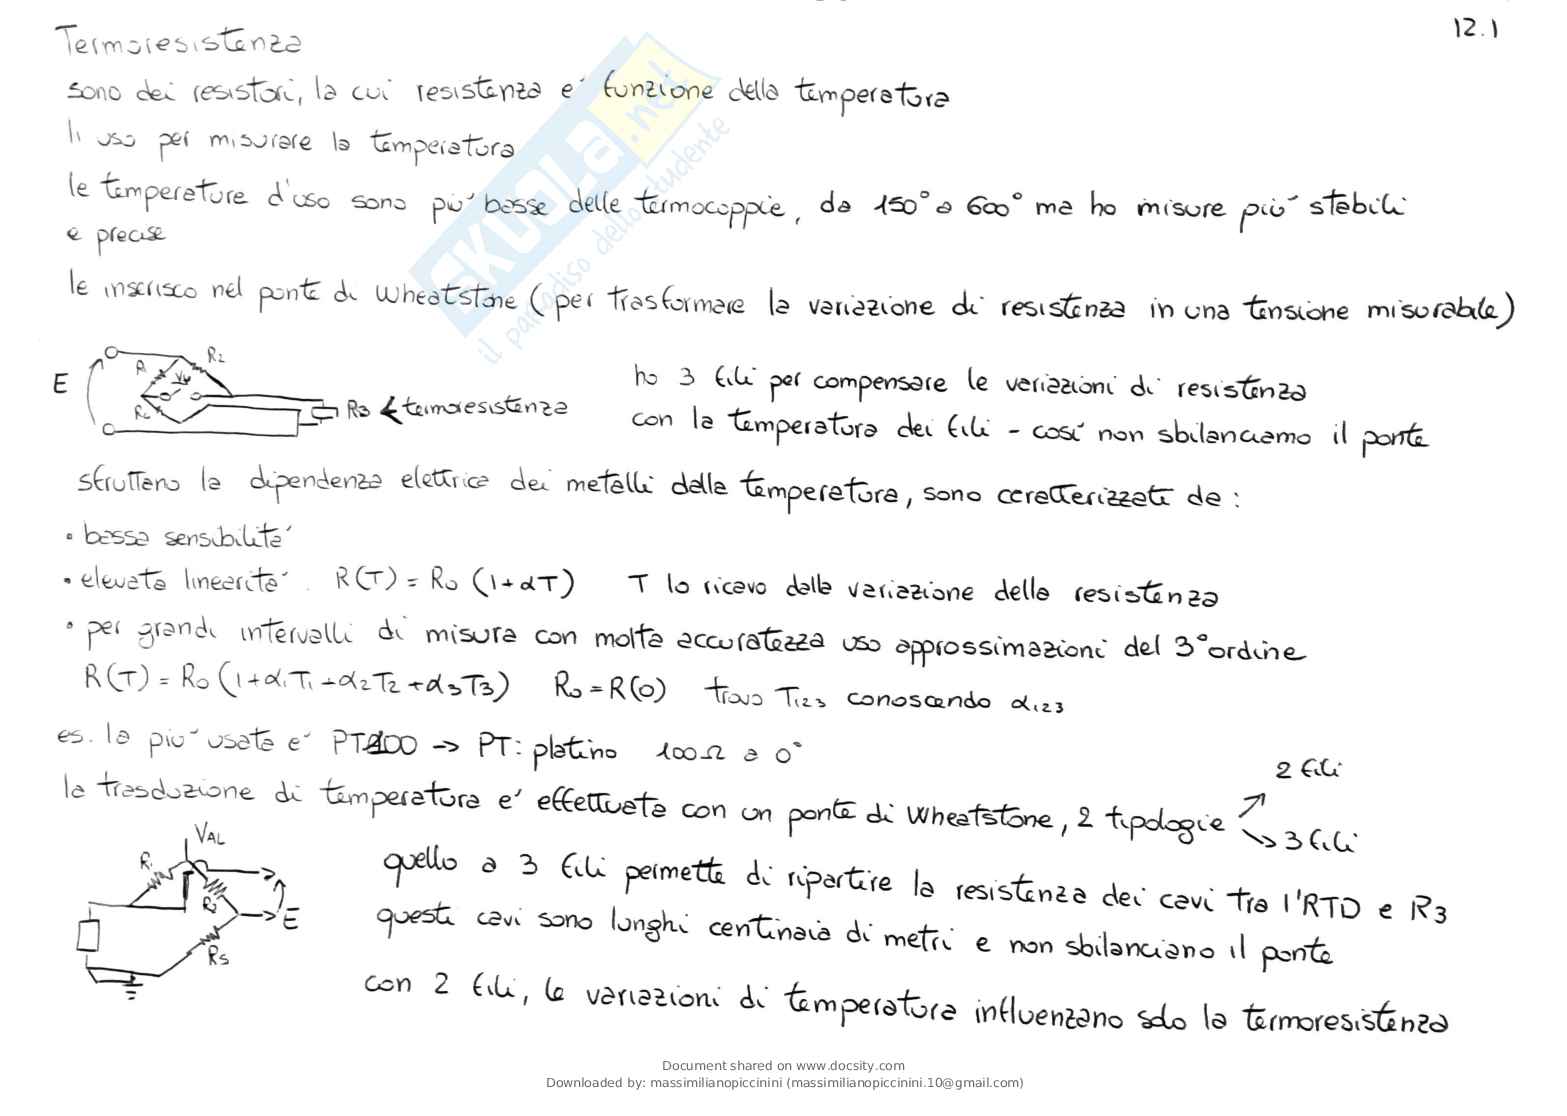 12.1
Termoresistenza
sono dei resistori, la cui resistenza e' funzione della temperatura
li uso per misurare la temperatura
le temperature d'uso sono piu' basse delle termocoppie, da 150° a 600° ma ho misure piu' stabili
e precise
le inserisco nel ponte di Wheatstone (per trasformare la variazione di resistenza in una tensione misurabile)
E R1 R2 R3 ← termoresistenza
ho 3 fili per compensare le variazioni di resistenza
con la temperatura dei fili - cosi' non sbilanciamo il ponte
sfruttano la dipendenza elettrica dei metalli dalla temperatura, sono caratterizzati da:
• bassa sensibilita'
• elevata linearita'. R(T) = R0 (1+αT) T lo ricavo dalla variazione della resistenza
• per grandi intervalli di misura con molta accuratezza uso approssimazioni del 3° ordine
R(T) = R0 (1+α1T1+α2T2+α3T3) R0=R(0) trovo T123 conoscendo α123
es. la piu' usata e' PT100 → PT: platino 100Ω a 0°
la trasduzione di temperatura e' effettuata con un ponte di Wheatstone, 2 tipologie
2 fili
3 fili
VAL
R1
R2
E
RS
quello a 3 fili permette di ripartire la resistenza dei cavi tra l'RTD e R3
questi cavi sono lunghi centinaia di metri e non sbilanciano il ponte
con 2 fili, le variazioni di temperatura influenzano solo la termoresistenza
SKUOLA.net
il paradiso dello studente
Document shared on www.docsity.com
Downloaded by: massimilianopiccinini (massimilianopiccinini.10@gmail.com)